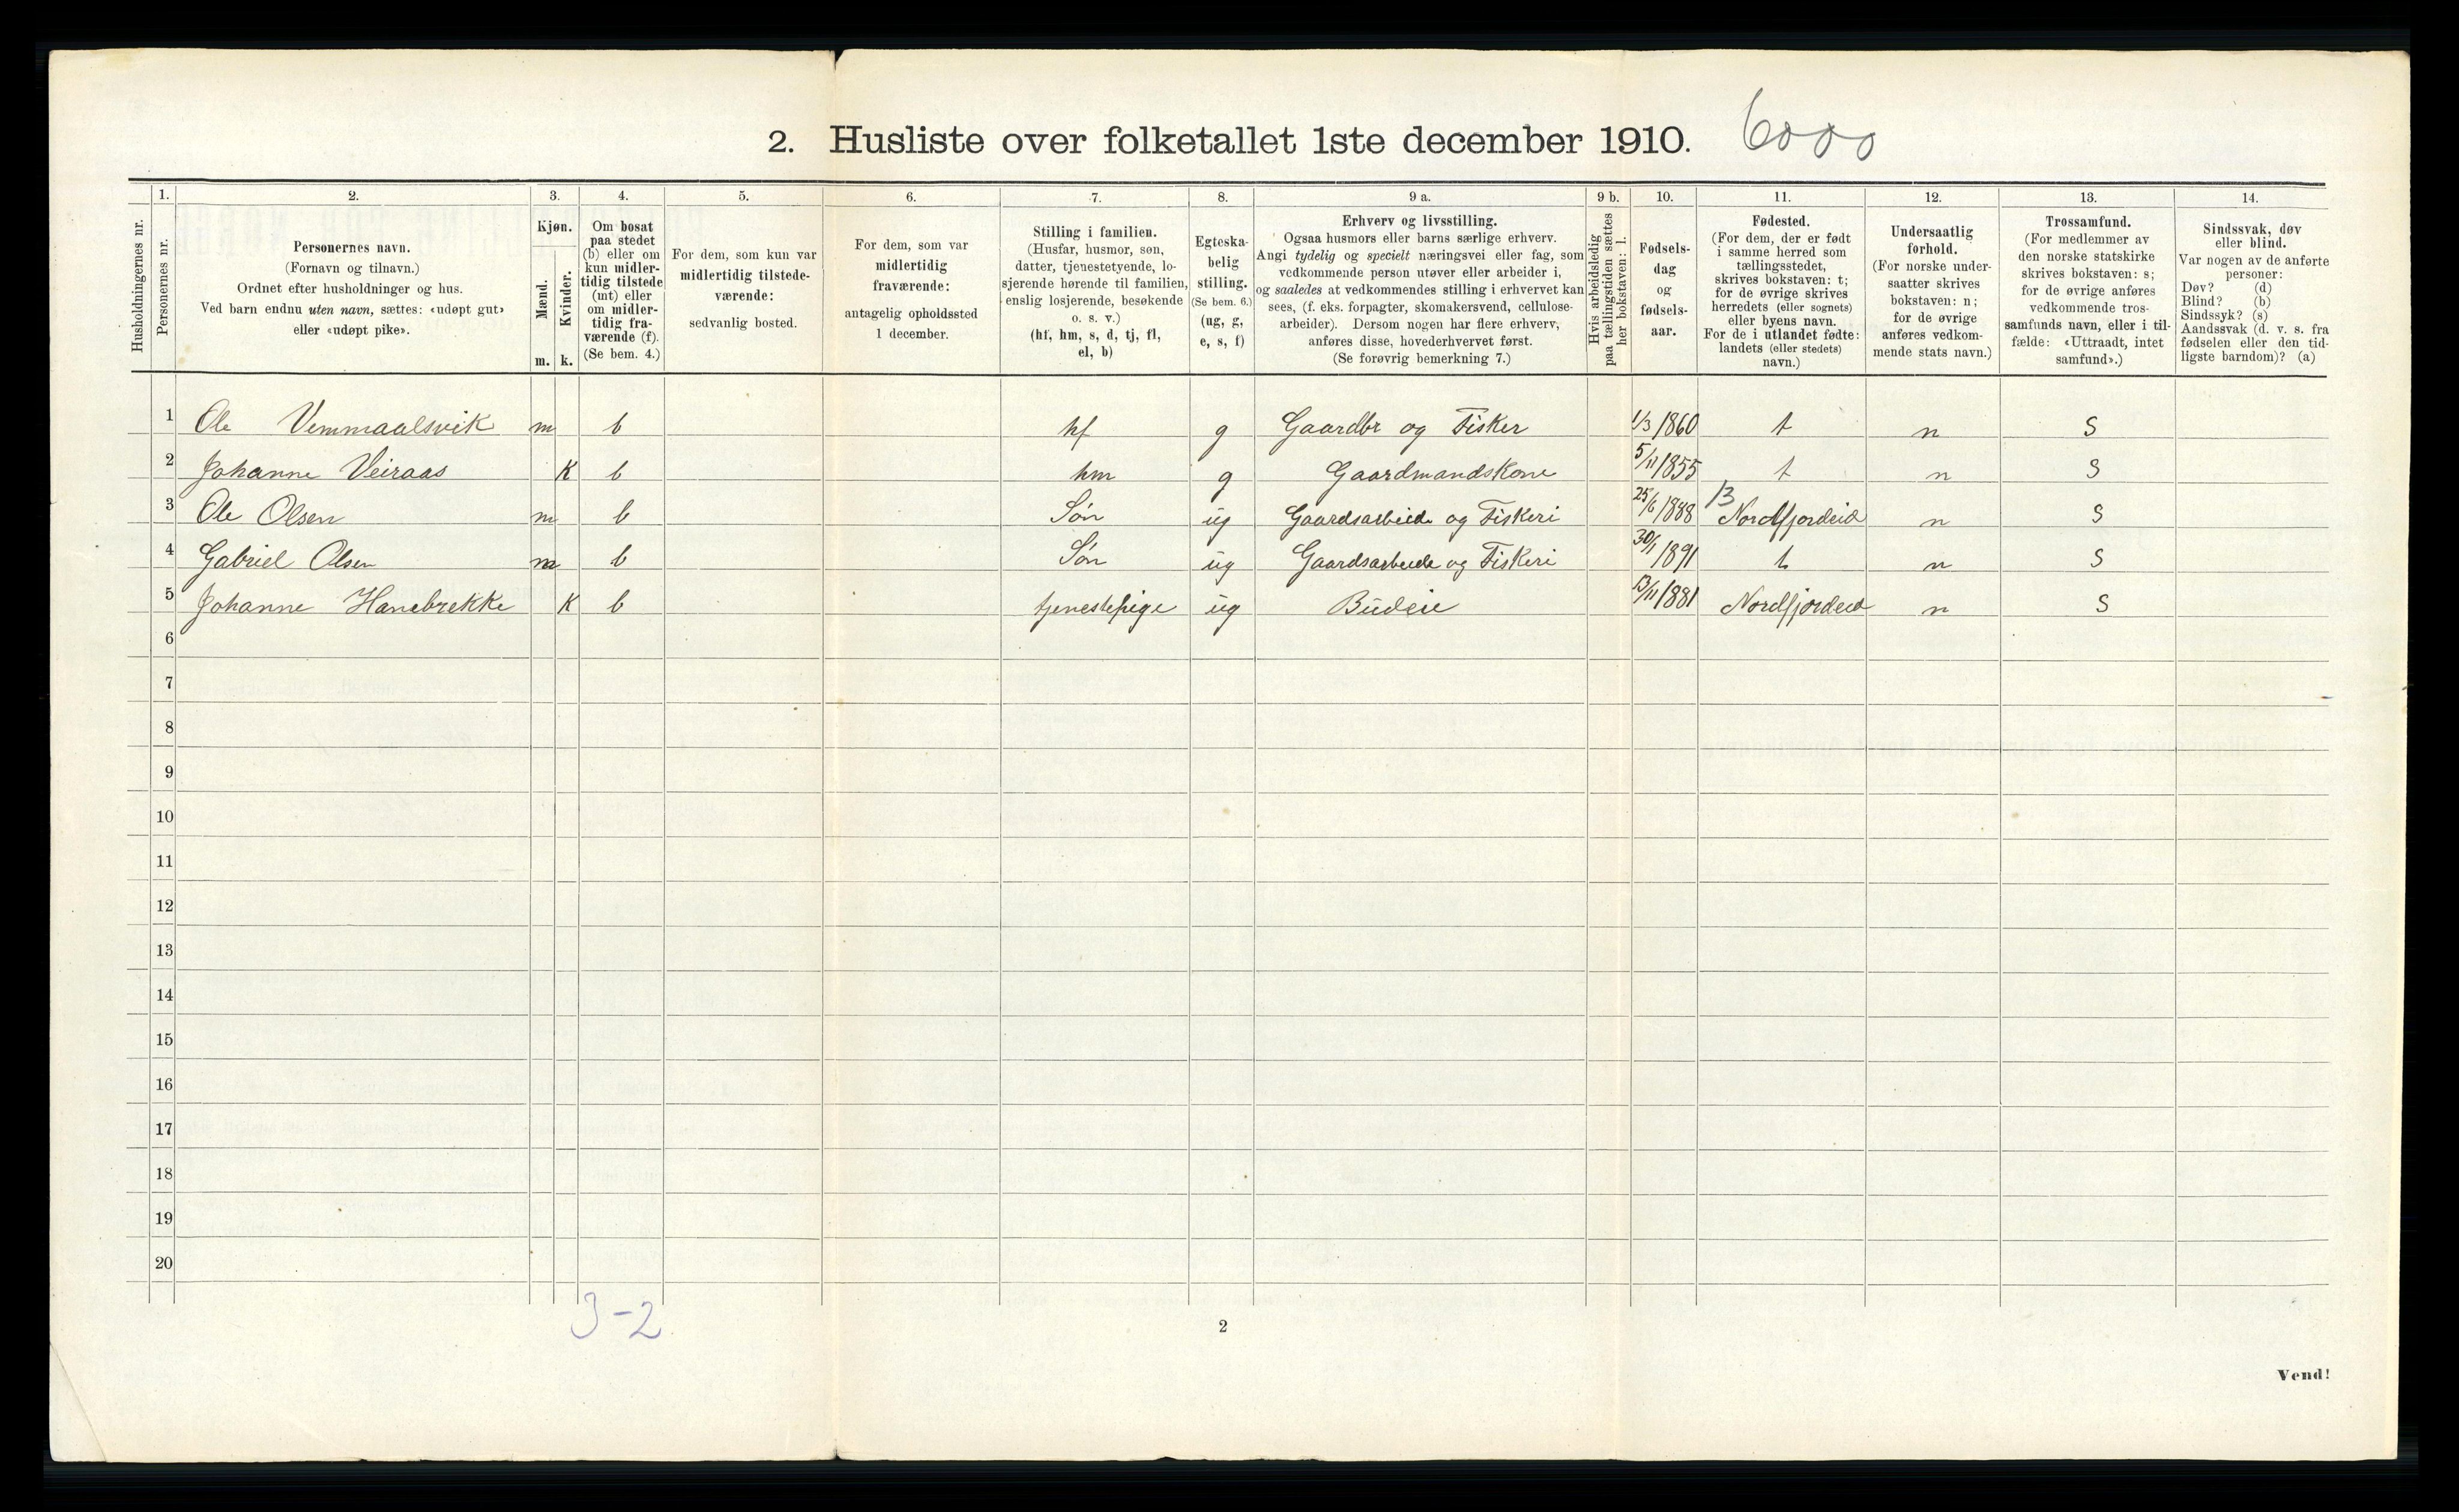 2. Husliste over folketallet 1ste december 1910. 6000
1. 2. 3. 4. 5. 6. 7. 8. 9 a. 9 b. 10. 11. 12. 13. 14.
Husholdningernes nr.
Personernes nr.
Personernes navn.
(Fornavn og tilnavn.)
Ordnet efter husholdninger og hus.
Ved barn endnu uten navn, sættes: «udøpt gut»
eller «udøpt pike».
Kjøn.
Mænd.
m.
Kvinder.
k.
Om bosat
paa stedet
(b) eller om
kun midler-
tidig tilstede
(mt) eller
om midler-
tidig fra-
værende (f).
(Se bem. 4.)
For dem, som kun var
midlertidig tilstede-
værende:
sedvanlig bosted.
For dem, som var
midlertidig
fraværende:
antagelig opholdssted
1 december.
Stilling i familien.
(Husfar, husmor, søn,
datter, tjenestetyende, lo-
sjerende hørende til familien,
enslig losjerende, besøkende
o. s. v.)
(hf, hm, s, d, tj, fl,
el, b)
Egteska-
belig
stilling.
(Se bem. 6.)
(ug, g,
e, s, f)
Erhverv og livsstilling.
Ogsaa husmors eller barns særlige erhverv.
Angi tydelig og specielt næringsvei eller fag, som
vedkommende person utøver eller arbeider i,
og saaledes at vedkommendes stilling i erhvervet kan
sees, (f. eks. forpagter, skomakersvend, cellulose-
arbeider). Dersom nogen har flere erhverv,
anføres disse, hovederhvervet først.
(Se forøvrig bemerkning 7.)
Hvis arbeidsledig
paa tællingstiden sættes
her bokstaven: l.
Fødsels-
dag
og
fødsels-
aar.
Fødested.
(For dem, der er født
i samme herred som
tællingsstedet,
skrives bokstaven: t;
for de øvrige skrives
herredets (eller sognets)
eller byens navn.
For de i utlandet fødte:
landets (eller stedets)
navn.)
Undersaatlig
forhold.
(For norske under-
saatter skrives
bokstaven: n;
for de øvrige
anføres vedkom-
mende stats navn.)
Trossamfund.
(For medlemmer av
den norske statskirke
skrives bokstaven: s;
for de øvrige anføres
vedkommende tros-
samfunds navn, eller i til-
fælde: «Uttraadt, intet
samfund».)
Sindssvak, døv
eller blind.
Var nogen av de anførte
personer:
Døv? (d)
Blind? (b)
Sindssyk? (s)
Aandssvak (d. v. s. fra
fødselen eller den tid-
ligste barndom)? (a)
1 Ole Vemmaalsvik m b hf g Gaardbr og Fisker 1/3 1860 t n S
2 Johanne Veiraas K b hm g Gaardmandskone 5/11 1855 t n S
3 Ole Olsen m b Søn ug Gaardsarbeide og Fiskeri 25/6 1888 13 Nordfjordeid n S
4 Gabriel Olsen m b Søn ug Gaardsarbeide og Fiskeri 30/1 1891 t n S
5 Johanne Hanebrekke K b tjenestepige ug Budeie 13/11 1881 Nordfjordeid n S
6
7
8
9
10
11
12
13
14
15
16
17
18
19
20
3-2
2
Vend!